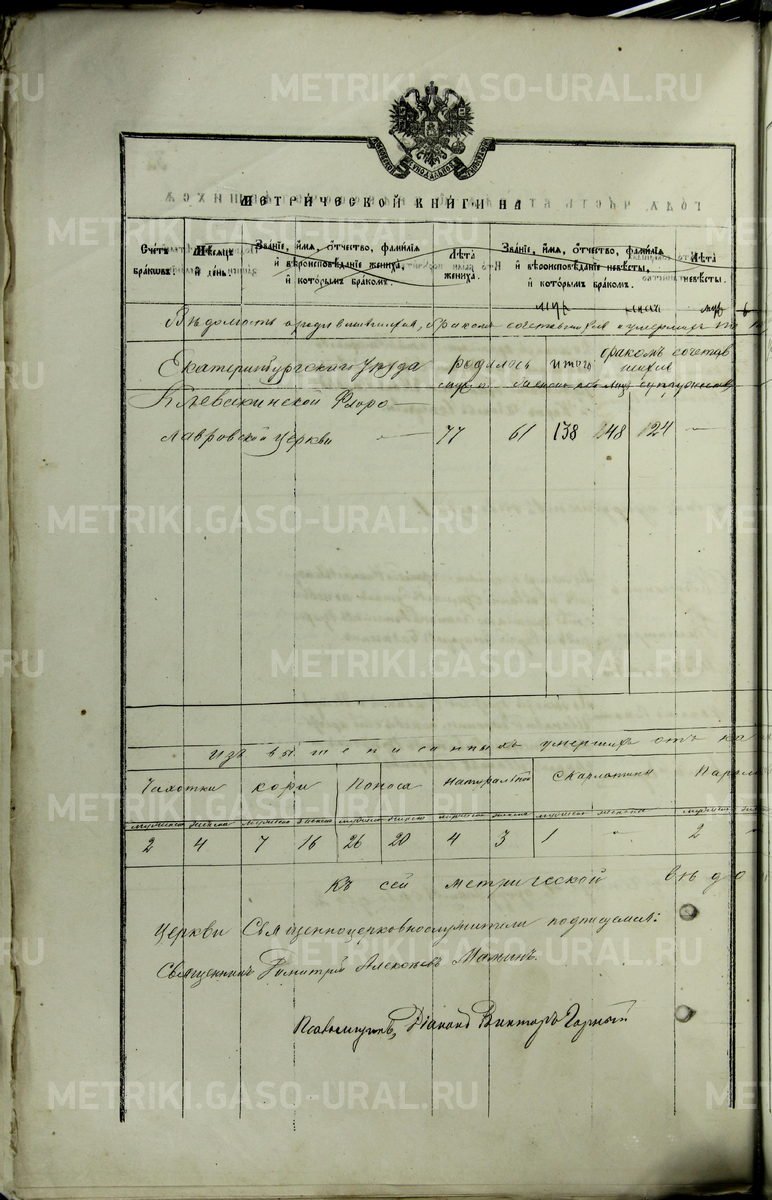 METRIKI.GASO-URAL.RU
МЕТРИЧЕСКОЙ КНИГИ НА
Счетъ браковъ.
Мѣсяцъ й день.
Званіе, имя, отчество, фамилія й вѣроисповѣданіе жениха, й которымъ бракомъ.
Лѣта жениха.
Званіе, имя, отчество, фамилія й вѣроисповѣданіе невѣсты, й которымъ бракомъ.
Лѣта невѣсты.
Вѣдомость о родившихся, бракомъ сочетавшихся и умершихъ
Екатеринбургскаго уѣзда родилось итого бракомъ сочетав
шихся
Клевакинской Флоро-
Лавровской церкви — 77 61 138 248 124 —
METRIKI.GASO-URAL.RU
изъ вышеписанныхъ умерших отъ ка
Чахотки кори Поноса натуральной Скарлатины
2 4 7 16 26 20 4 3 1 " 2
Къ сей метрической вѣдо
церкви Священноцерковнослужители подписуемся:
Священникъ Димитрій Алексѣевъ Маминъ.
Псаломщикъ, Діаконъ Викторъ Горный
METRIKI.GASO-URAL.RU